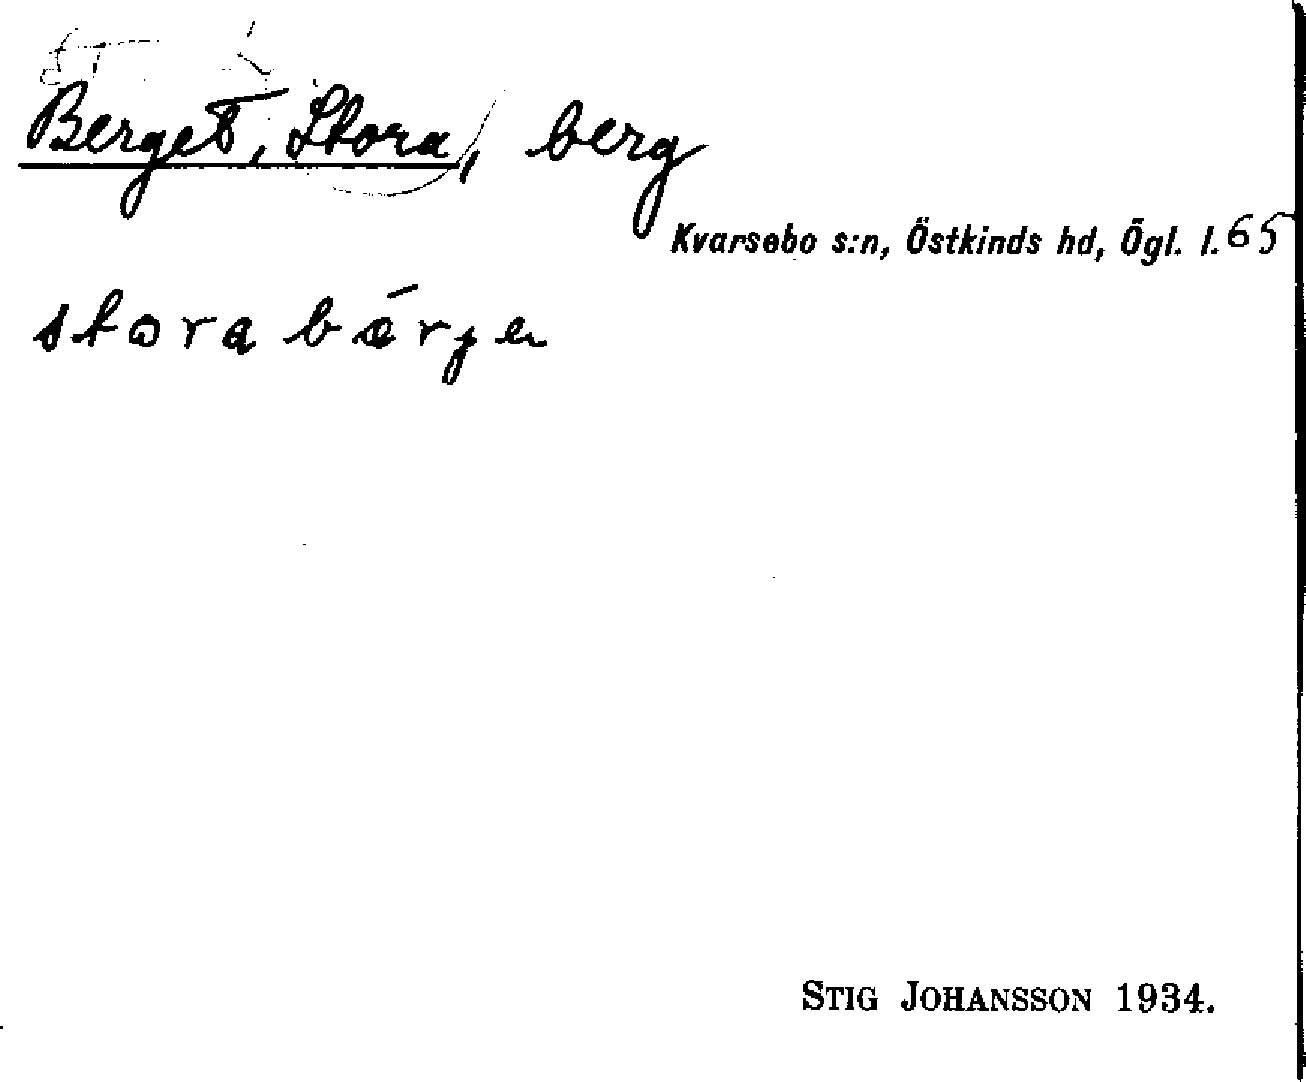 Berget, Stora, berg
Kvarsebo s:n, Östkinds hd, Ögl. l. 65
stora bǽrje
STIG JOHANSSON 1934.